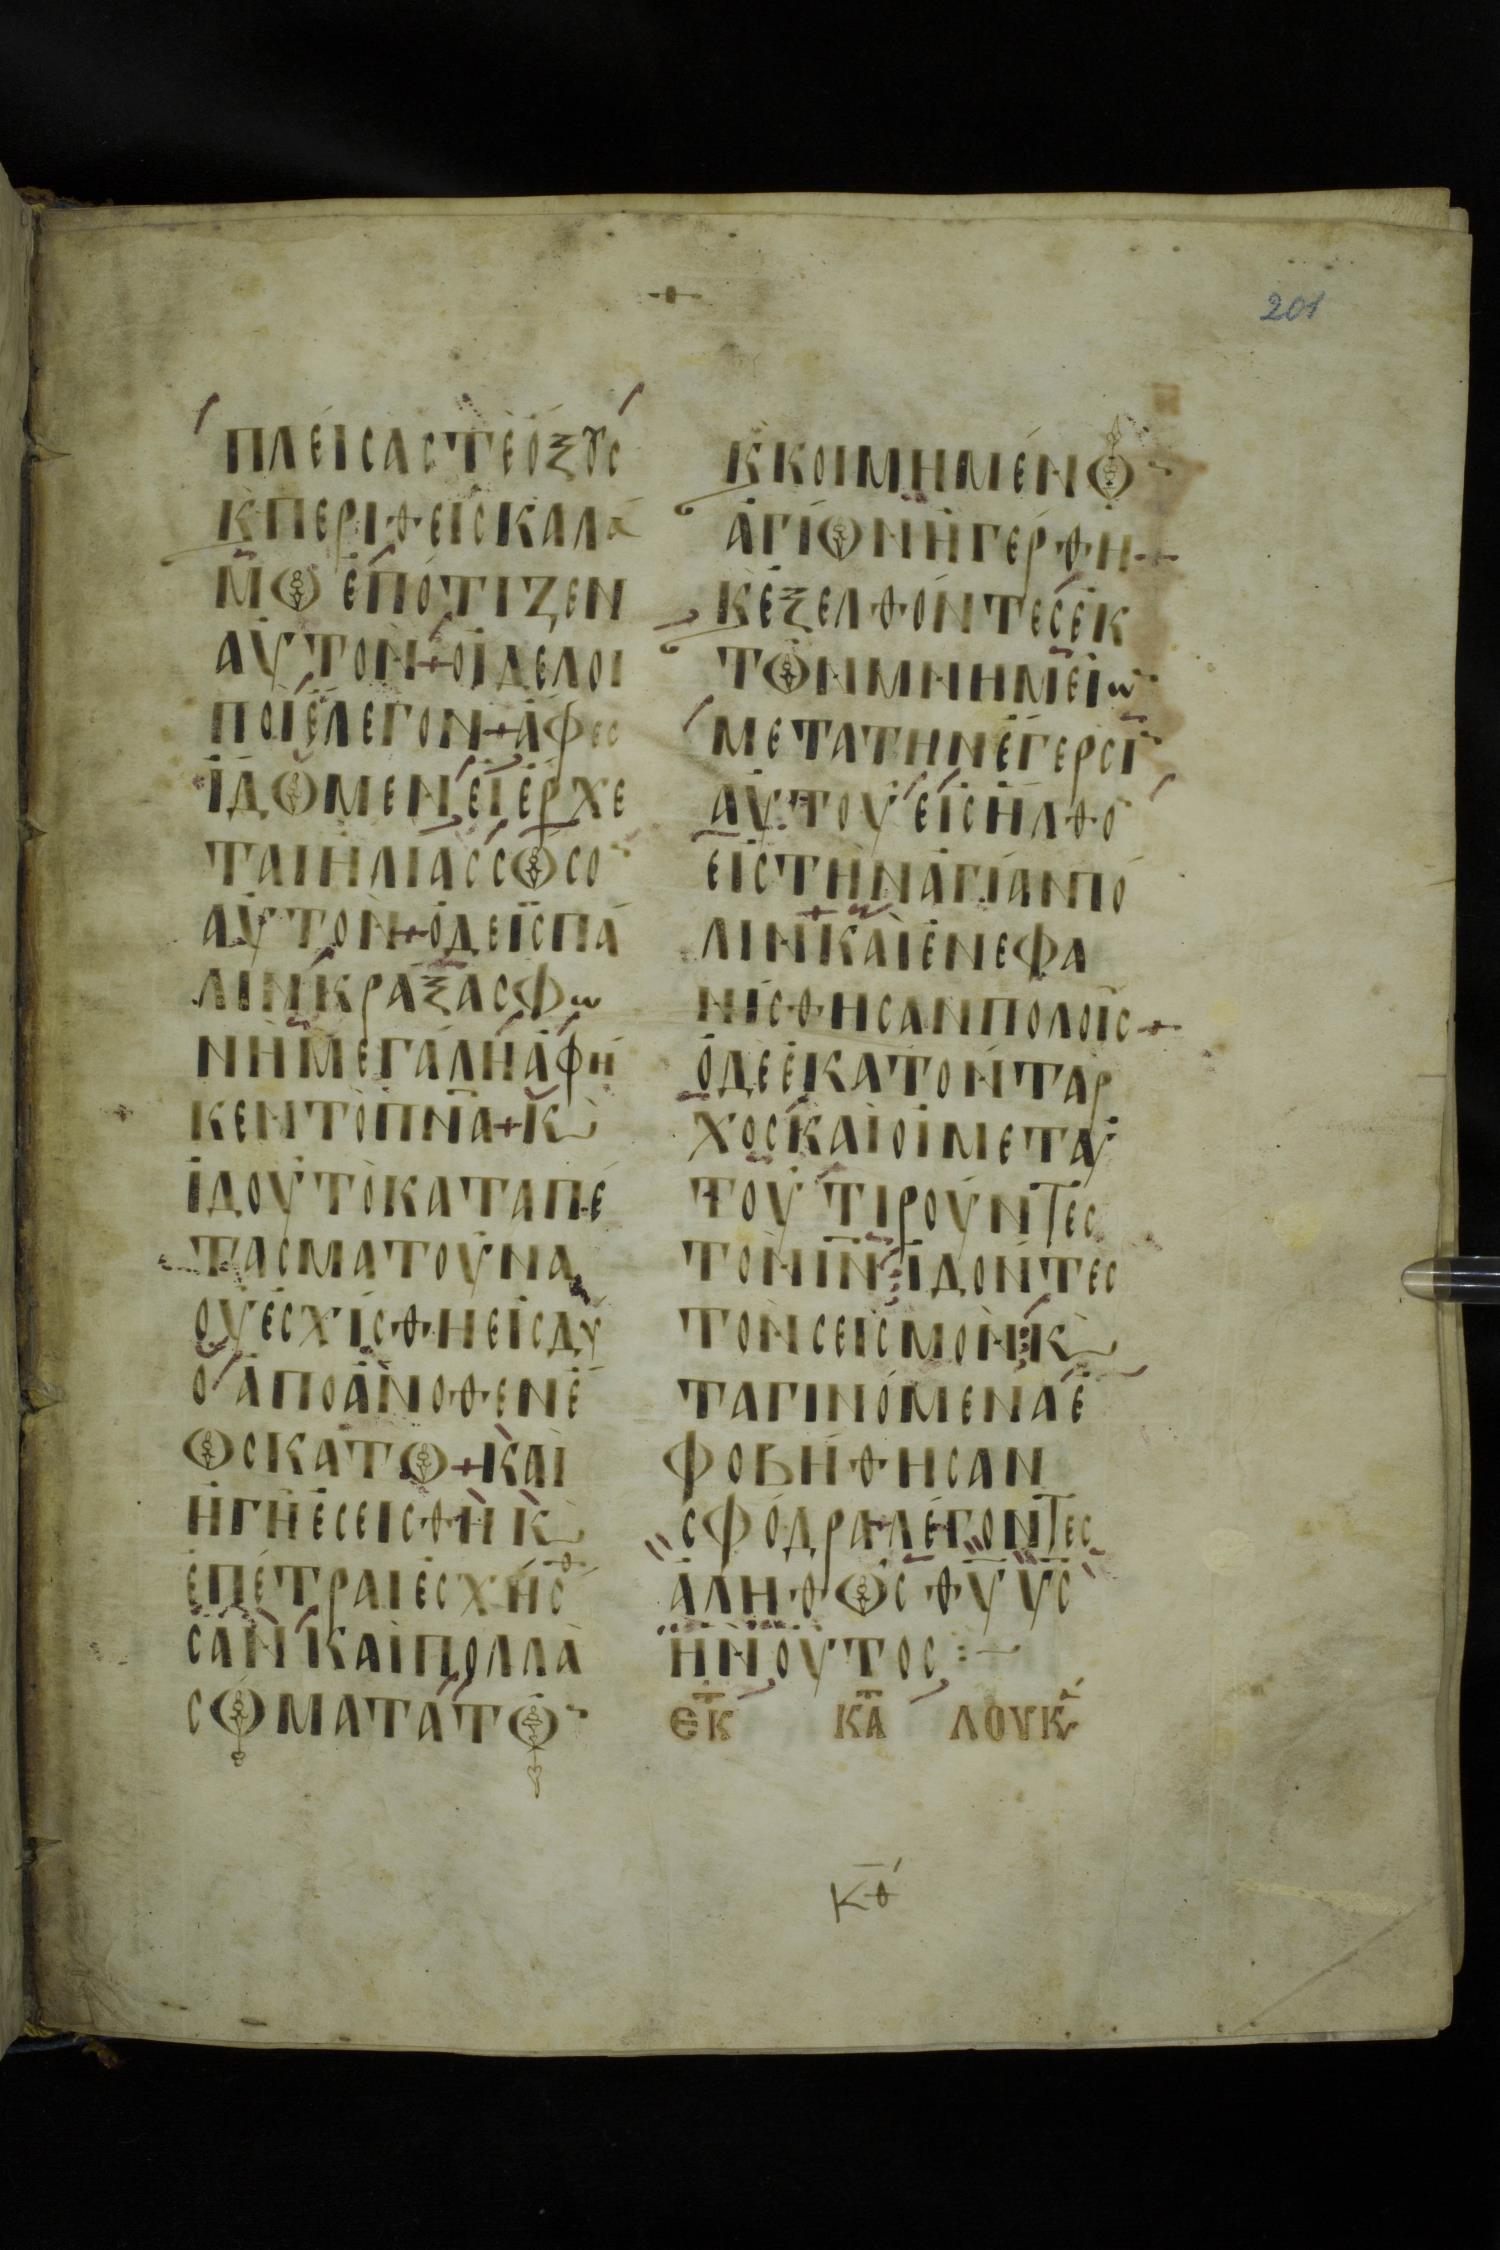 201
ΠΛΕΙCΑCΤΕΟΞȢC
ΚΠΕΡΙΘΕΙCΚΑΛΑ
ΜΩΕΠΟΤΙΖΕΝ
ΑΥΤΟΝ+ΟΙΔΕΛΟΙ
ΠΟΙΕΛΕΓΟΝ+ΑΦΕC
ΙΔΩΜΕΝΕΙΕΡΧΕ
ΤΑΙΗΛΙΑCCΩCΟ
ΑΥΤΟΝ+ΟΔΕΙCΠΑ
ΛΙΝΚΡΑΞΑCΦω
ΝΗΜΕΓΑΛΗΑΦΗ
ΚΕΝΤΟΠΝΑ+Κ
ΙΔΟΥΤΟΚΑΤΑΠΕ
ΤΑCΜΑΤΟΥΝΑ
ΟΥΕCΧΙCΘΗΕΙCΔΥ
ΟΑΠΟΑΝΟΘΕΝΕ
ΩCΚΑΤΩ+ΚΑΙ
ΗΓΗΕCΕΙCΘΗΚ
ΕΠΕΤΡΑΙΕCΧΗCΘ
CΑΝΚΑΙΠΟΛΛΑ
CΩΜΑΤΑΤΩ
ΚΚΟΙΜΗΜΕΝΩ
ΑΓΙΩΝΗΓΕΡΘΗ+
ΚΕΞΕΛΘΟΝΤΕCΕΚ
ΤΩΝΜΝΗΜΕΙω
ΜΕΤΑΤΗΝΕΓΕΡCΙ
ΑΥΤΟΥΕΙCΗΛΘΟ
ΕΙCΤΗΝΑΓΙΑΝΠΟ
ΛΙΝΚΑΙΕΝΕΦΑ
ΝΙCΘΗCΑΝΠΟΛΟΙC+
ΟΔΕΕΚΑΤΟΝΤΑΡ
ΧΟCΚΑΙΟΙΜΕΤΑΥ
ΤΟΥΤΙΡΟΥΝΤΕC
ΤΟΝΙΝΙΔΟΝΤΕC
ΤΟΝCΕΙCΜΟΝΚ
ΤΑΓΙΝΟΜΕΝΑΕ
ΦΟΒΗΘΗCΑΝ
CΦΟΔΡΑ+ΛΕΓΟΝΤΕC
ΑΛΗΘΩCΘΥΥC
ΗΝΟΥΤΟC:—
ΕΚ ΚΑ ΛΟΥΚ
ΚΘ